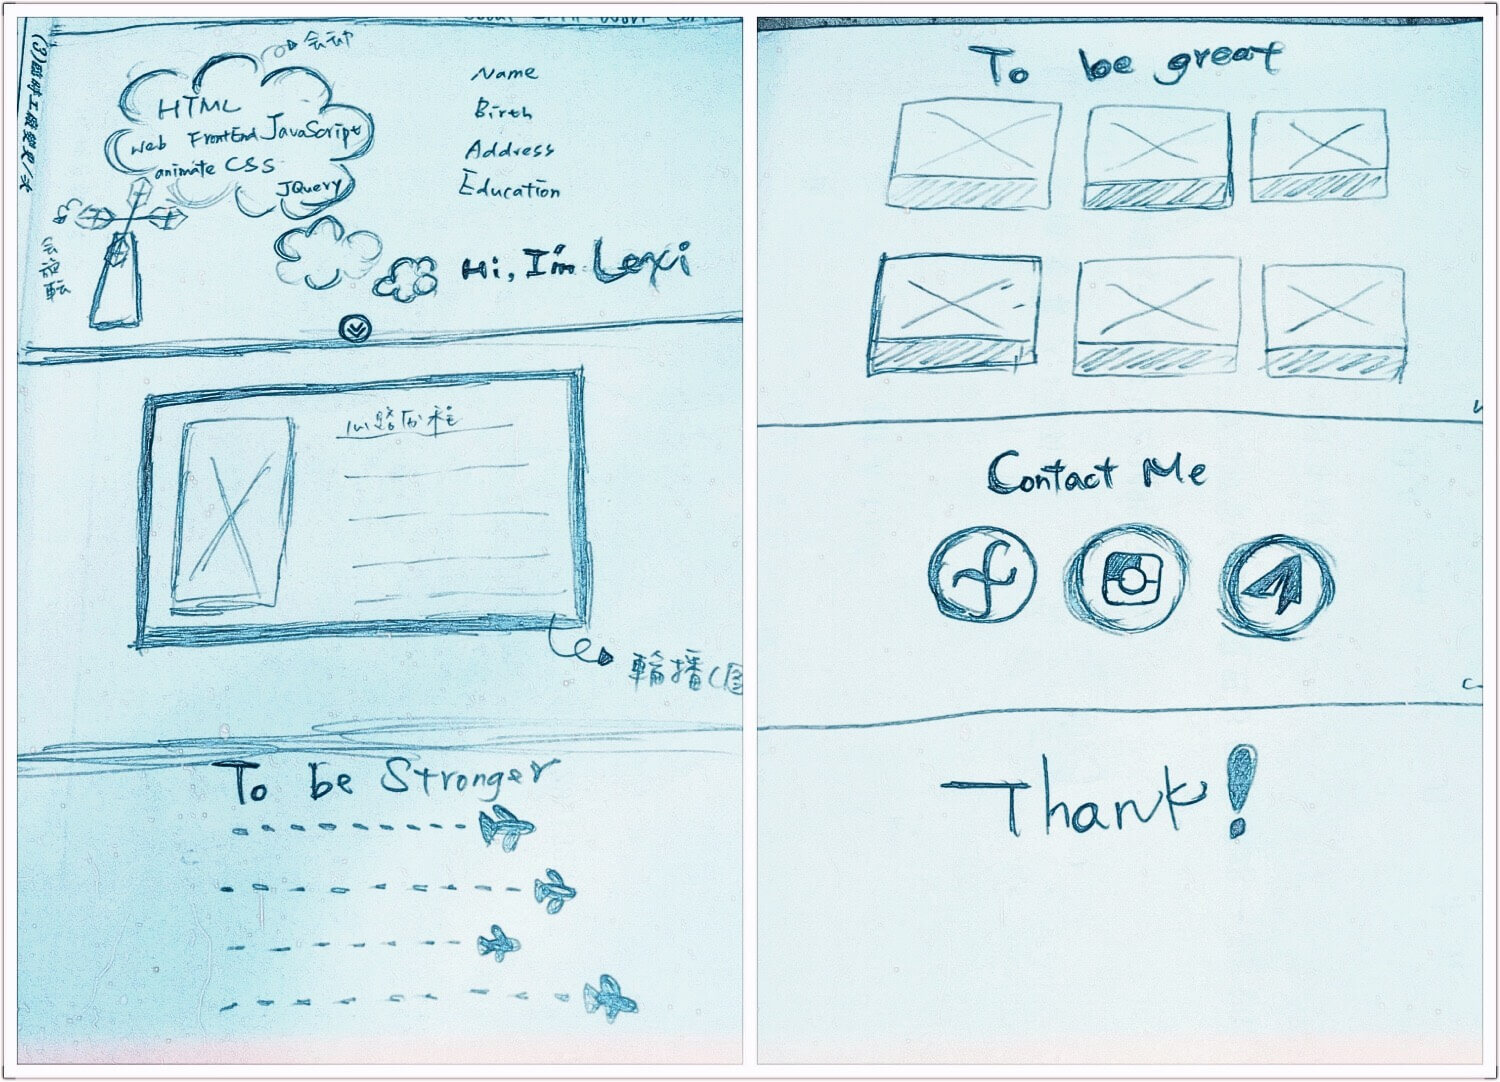 会动
HTML
web FrontEnd JavaScript
animate CSS
JQuery
会旋転
Name
Birth
Address
Education
Hi, I'm Lexi
心路历程
輪播(图
To be Stronger
To be great
Contact Me
Thank!